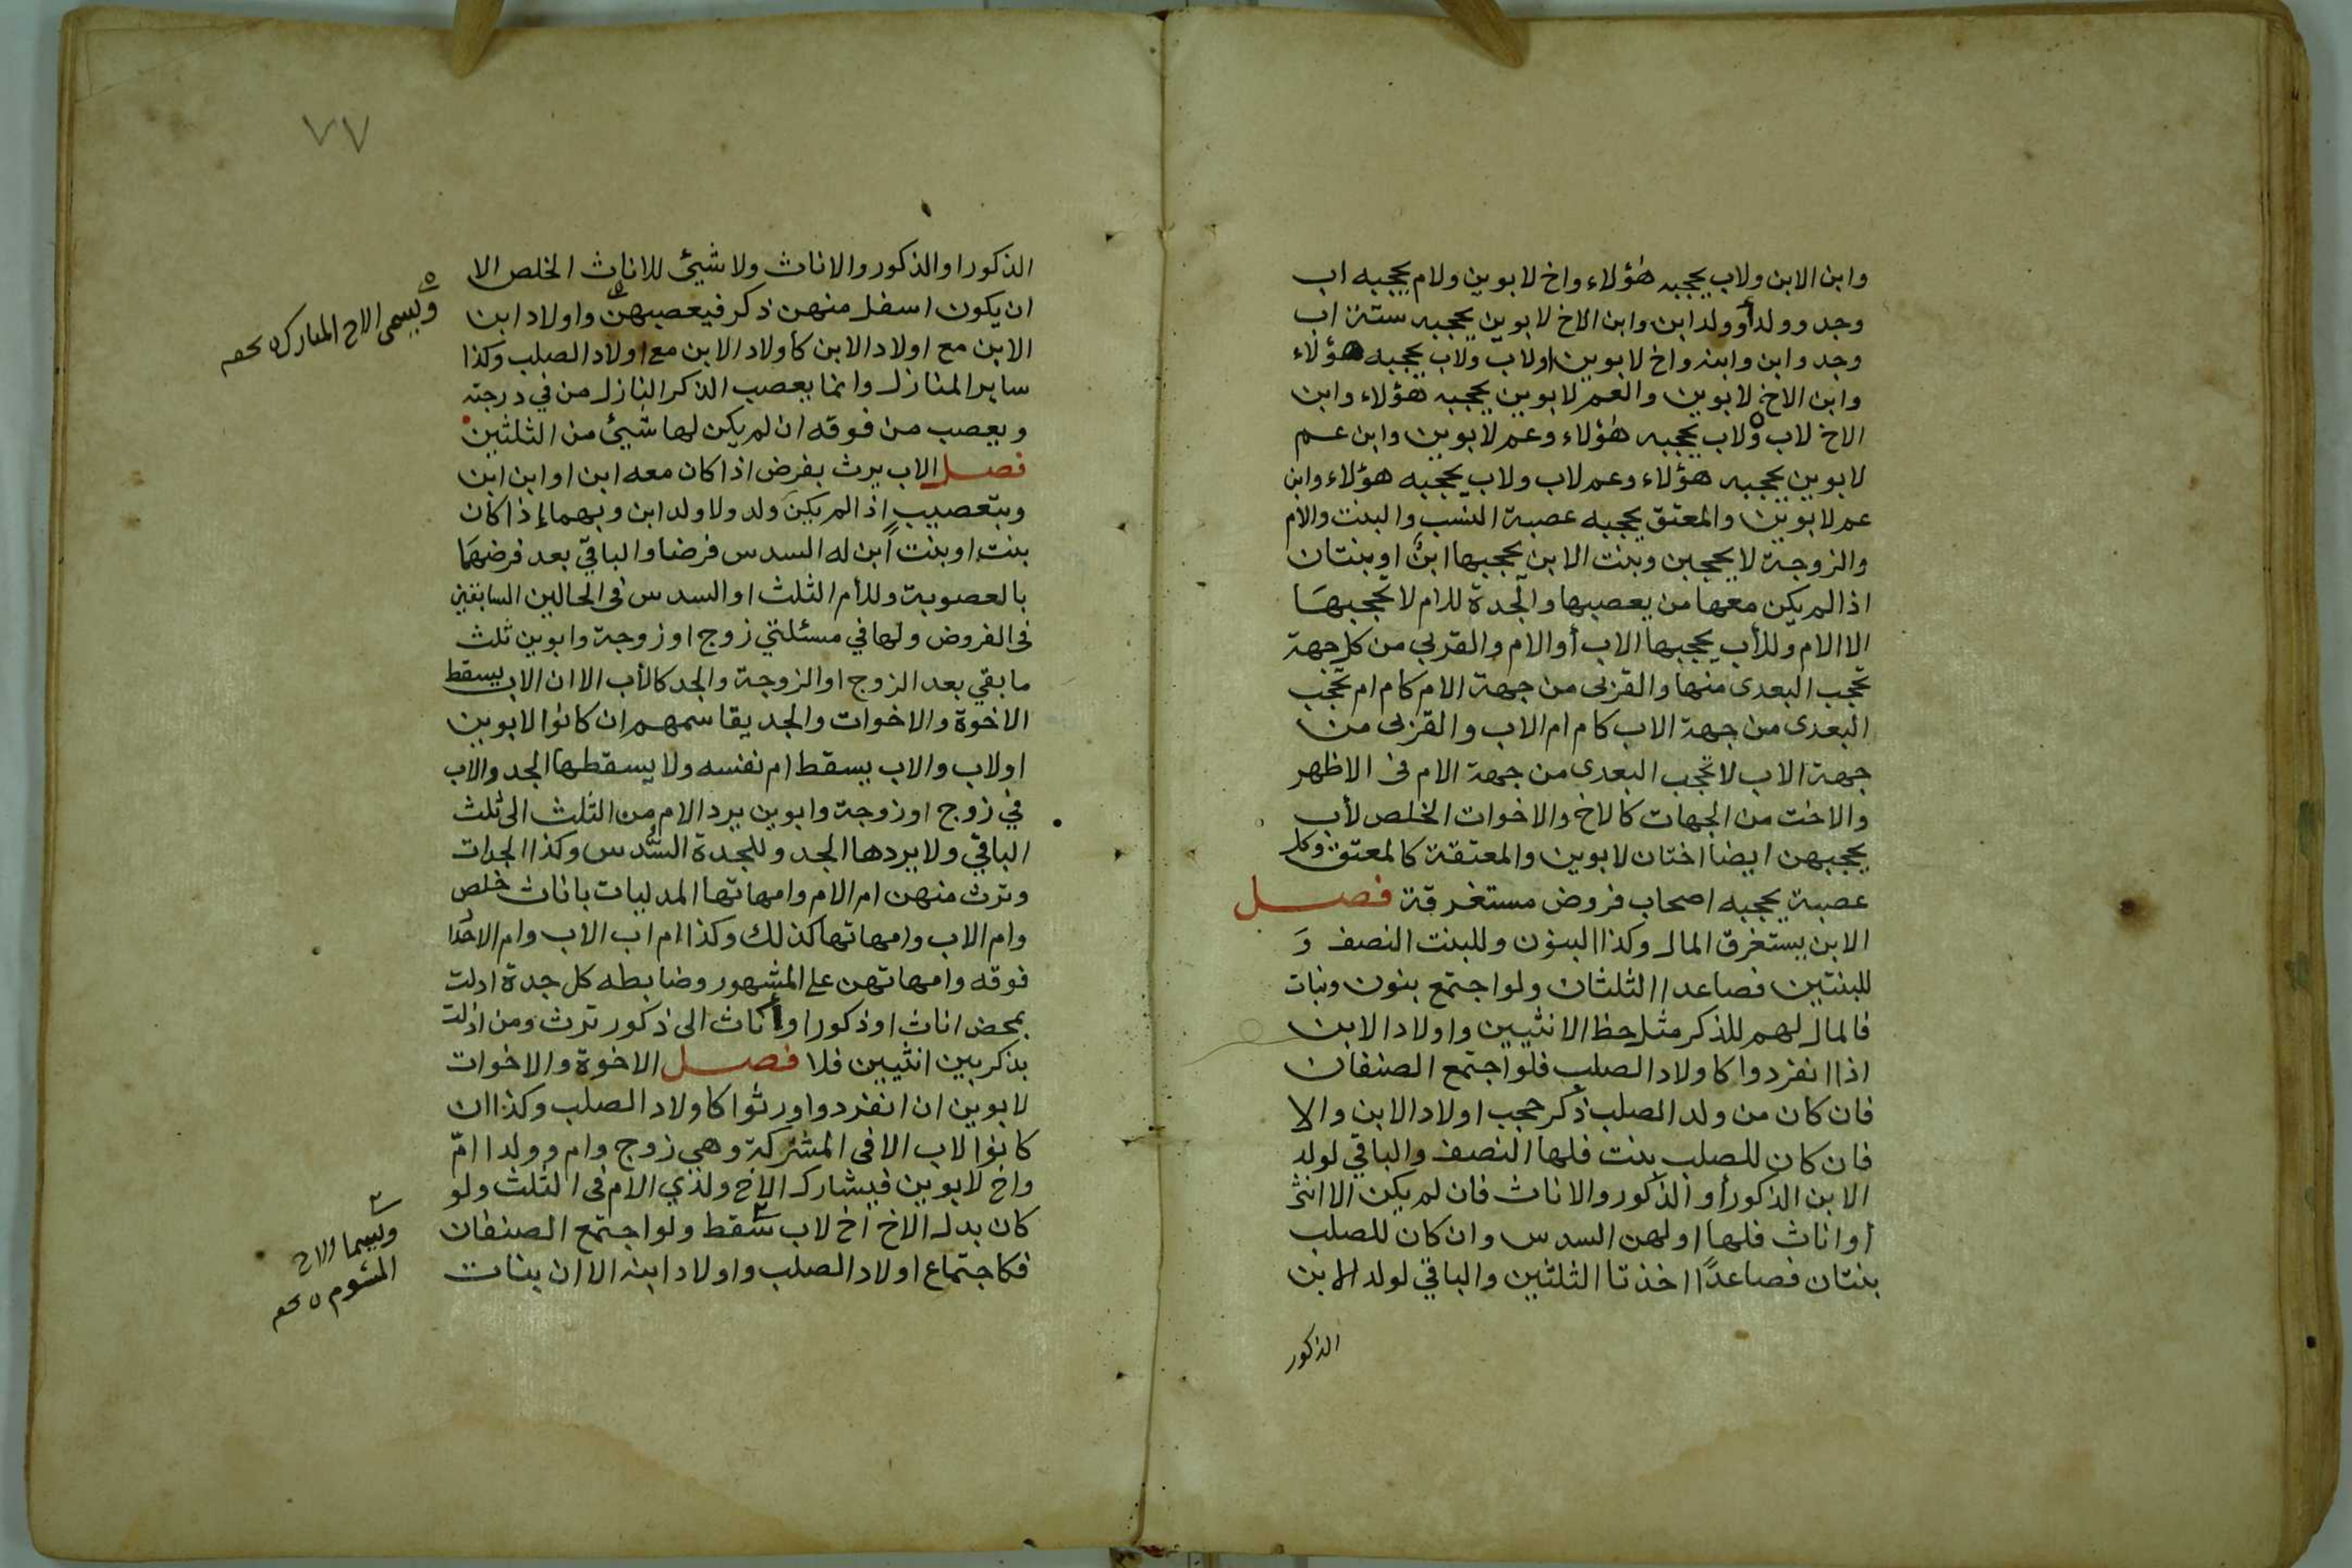 وابن الابن ولاب يحجبه هؤلاء واخ لابوين ولام يحجبه اب
وجد وولد أو ولد ابن وابن الاخ لابوين يحجبه ستة اب
وجد وابن وابنه واخ لابوين اولاب ولاب يحجبه هؤلاء
وابن الاخ لابوين والعم لابوين يحجبه هؤلاء وابن
الاخ لاب ولاب يحجبه هؤلاء وعم لابوين وابن عم
لابوين يحجبه هؤلاء وعم لاب ولاب يحجبه هؤلاء وابن
عم لابوين والمعتق يحجبه عصبة النسب والبنت والام
والزوجة لا يحجبن وبنت الابن يحجبها ابن او بنتان
اذا لم يكن معها من يعصبها والجدة للام لا تحجبها
الا الام وللأب يحجبها الاب أو الام والقربي من كل جهة
تحجب البعدى منها والقربى من جهة الام كام ام تحجب
البعدى من جهة الاب كام ام الاب والقربى من
جهة الاب لا تحجب البعدى من جهة الام فى الاظهر
والاخت من الجهات كالاخ والاخوات الخلص لأب
يحجبهن ايضا اختان لابوين والمعتقة كالمعتق وكل
عصبة يحجبه اصحاب فروض مستغرقة فصل
الابن يستغرق المال وكذا البنون وللبنت النصف وَ
للبنتين فصاعدا الثلثان ولو اجتمع بنون وبنات
فالمال لهم للذكر مثل حظ الانثيين واولاد الابن
اذا انفردوا كاولاد الصلب فلو اجتمع الصنفان
فان كان من ولد الصلب ذكر حجب اولاد الابن والا
فان كان للصلب بنت فلها النصف والباقي لولد
الابن الذكور أو الذكور والاناث فان لم يكن الا انثى
أو اناث فلها او لهن السدس وان كان للصلب
بنتان فصاعدًا اخذتا الثلثين والباقي لولد الابن
الذكور
٧٧
الذكور او الذكور والاناث ولا شيئ للاناث الخلص الا
ان يكون اسفل منهن ذكر فيعصبهن واولاد ابن
الابن مع اولاد الابن كأولاد الابن مع اولاد الصلب وكذا
ساير المنازل وانما يعصب الذكر النازل من في درجته
ويعصب من فوقه ان لم يكن لها شيئ من الثلثين
فصل الاب يرث بفرض اذا كان معه ابن او ابن ابن
وبتعصيب اذا لم يكن ولد ولا ولد ابن وبهما إذا كان
بنت او بنت ابن له السدس فرضا والباقي بعد فرضهما
بالعصوبة وللأم الثلث او السدس فى الحالين السابقين
فى الفروض ولها في مسئلتي زوج او زوجة وابوين ثلث
ما بقي بعد الزوج او الزوجة والجد كالأب الا ان الاب يسقط
الاخوة والاخوات والجد يقاسمهم ان كانوا لابوين
اولاب والاب يسقط ام نفسه ولا يسقطها الجد والاب
في زوج او زوجة وابوين يرد الام من الثلث الى ثلث
الباقي ولا يردها الجد وللجدة السُّدس وكذا الجدات
وترث منهن ام الام وامهاتها المدليات باناث خلص
وام الاب وامهاتها كذلك وكذا ام اب الاب وام الاجداد
فوقه وامهاتهن على المشهور وضابطه كل جدة ادلت
بمحض اناث او ذكور او أناث الى ذكور ترث ومن ادلت
بذكر بين انثيين فلا فصل الاخوة والاخوات
لابوين ان انفردوا ورثوا كاولاد الصلب وكذا ان
كانوا لاب الا فى المشركة وهي زوج وام وولدا امّ
واخ لابوين فيشارك الاخ ولدي الام فى الثلث ولو
كان بدل الاخ اخ لاب سقط ولو اجتمع الصنفان
فكاجتماع اولاد الصلب واولاد ابنه الا ان بنات
ويسمى الاخ المبارك
ويسما الاخ
المشوم